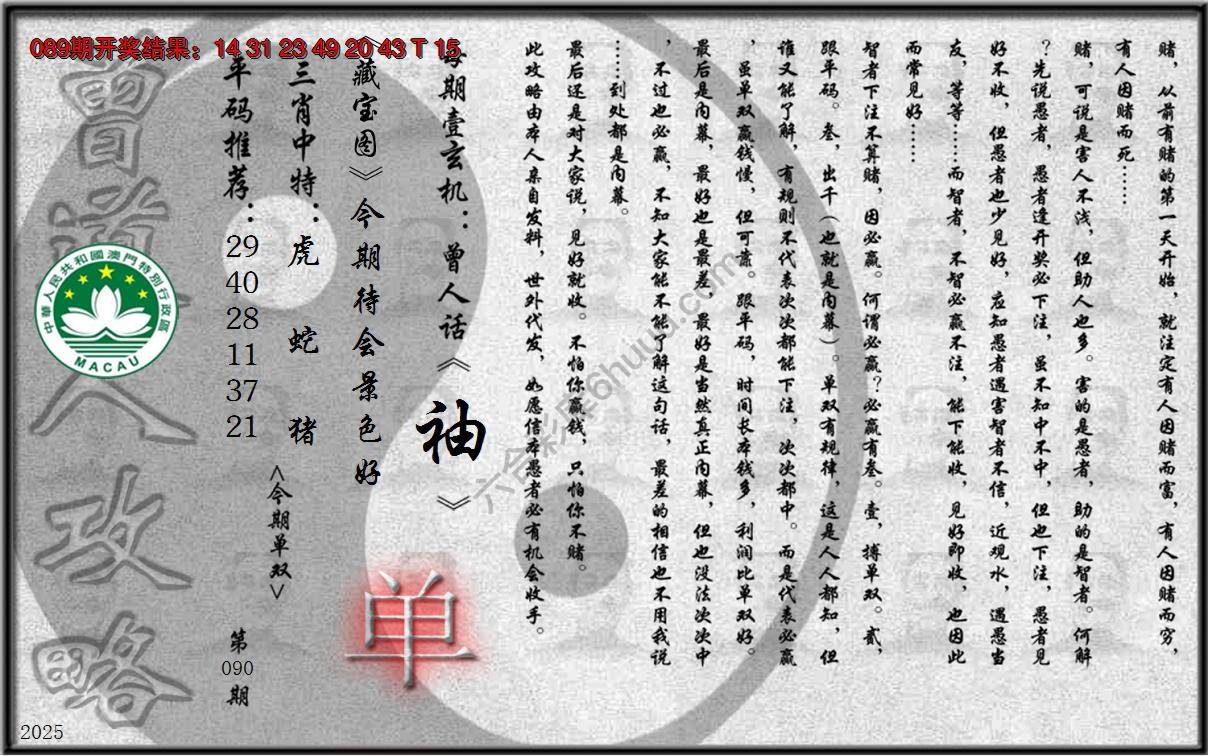 089期开奖结果：14 31 23 49 20 43 T 15
赌，从前有赌的第一天开始，就注定有人因赌而富，有人因赌而穷，
有人因赌而死……
赌，可说是害人不浅，但助人也多。害的是愚者，助的是智者。何解
？先说愚者，愚者逢开奖必下注，虽不知中不中，但也下注，愚者见
好不收，但愚者也少见好，应知愚者遇害智者不信，近观水，遇愚当
友，等等……而智者，不智必赢不注，能下能收，见好即收，也因此
而常见好……
智者下注不算赌，因必赢。何谓必赢？必赢有叁。壹，搏单双。贰，
跟平码。叁，出千（也就是内幕）。单双有规律，这是人人都知，但
谁又能了解，有规则不代表次次都能下注，次次都中。而是代表必赢
，虽单双赢钱慢，但可靠。跟平码，时间长本钱多，利润比单双好。
最后是内幕，最好也是最差，最好是当然真正内幕，但也没法次次中
，不过也必赢，不知大家能不能了解这句话，最差的相信也不用我说
……到处都是内幕。
最后还是对大家说，见好就收。不怕你赢钱，只怕你不赌。
此攻略由本人亲自发料，世外代发，如愿信本愚者必有机会收手。
每期壹玄机：曾人话《袖》
《藏宝图》今期待会景色好
三肖中特：虎 蛇 猪
<今期单双>
单
平码推荐：
29
40
28
11
37
21
第
090
期
曾道人攻略
中華人民共和國澳門特別行政區
MACAU
六合彩库6huuu.com
2025